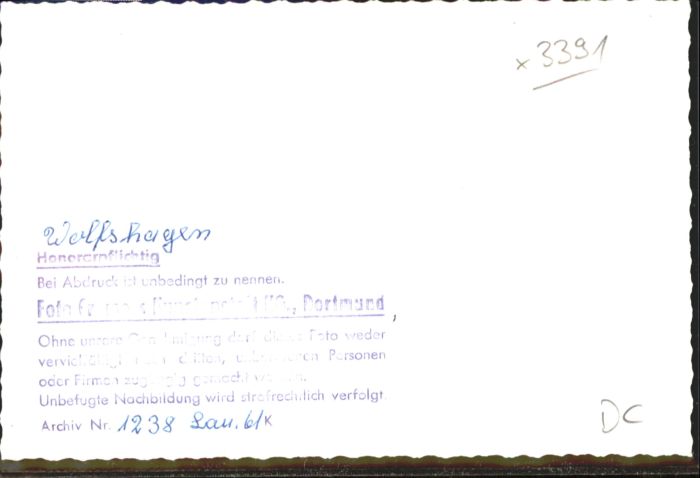 x 3391
Wolfshagen
Honorarpflichtig
Bei Abdruck ist unbedingt zu nennen.
Foto KG., Dortmund
Ohne unsere Genehmigung darf dieses Foto weder
vervielfältigt noch dritten, unbefugten Personen
oder Firmen zugängig gemacht werden.
Unbefugte Nachbildung wird strafrechtlich verfolgt.
Archiv Nr. 1238 Lau. b/K
DC